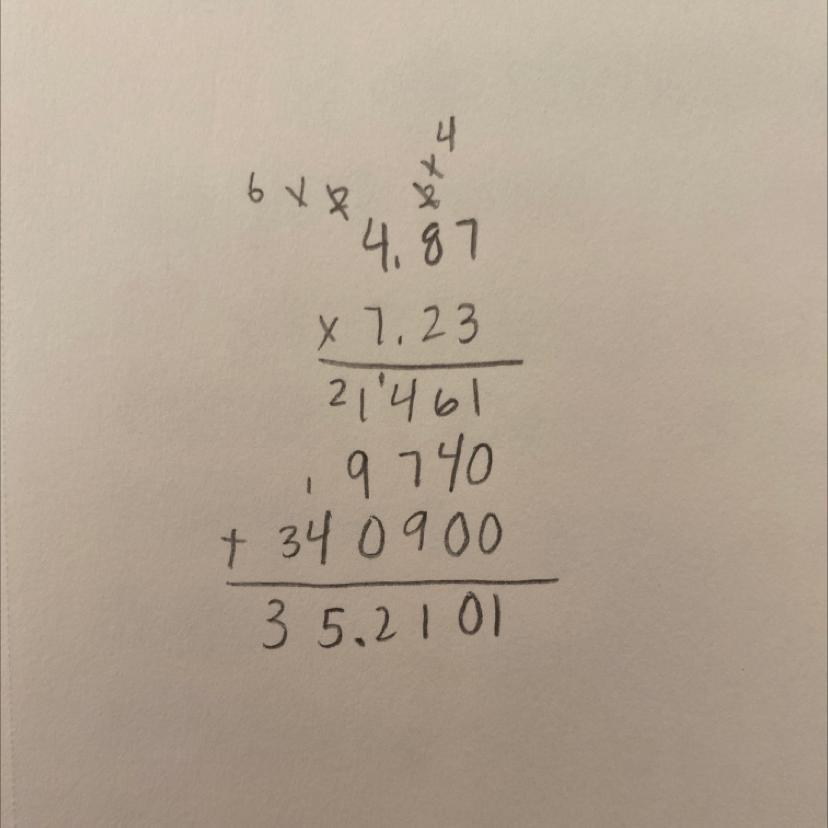 4
6
4.87
x 7.23
2 1 ¹461
1 9740
+ 340900
35.2101